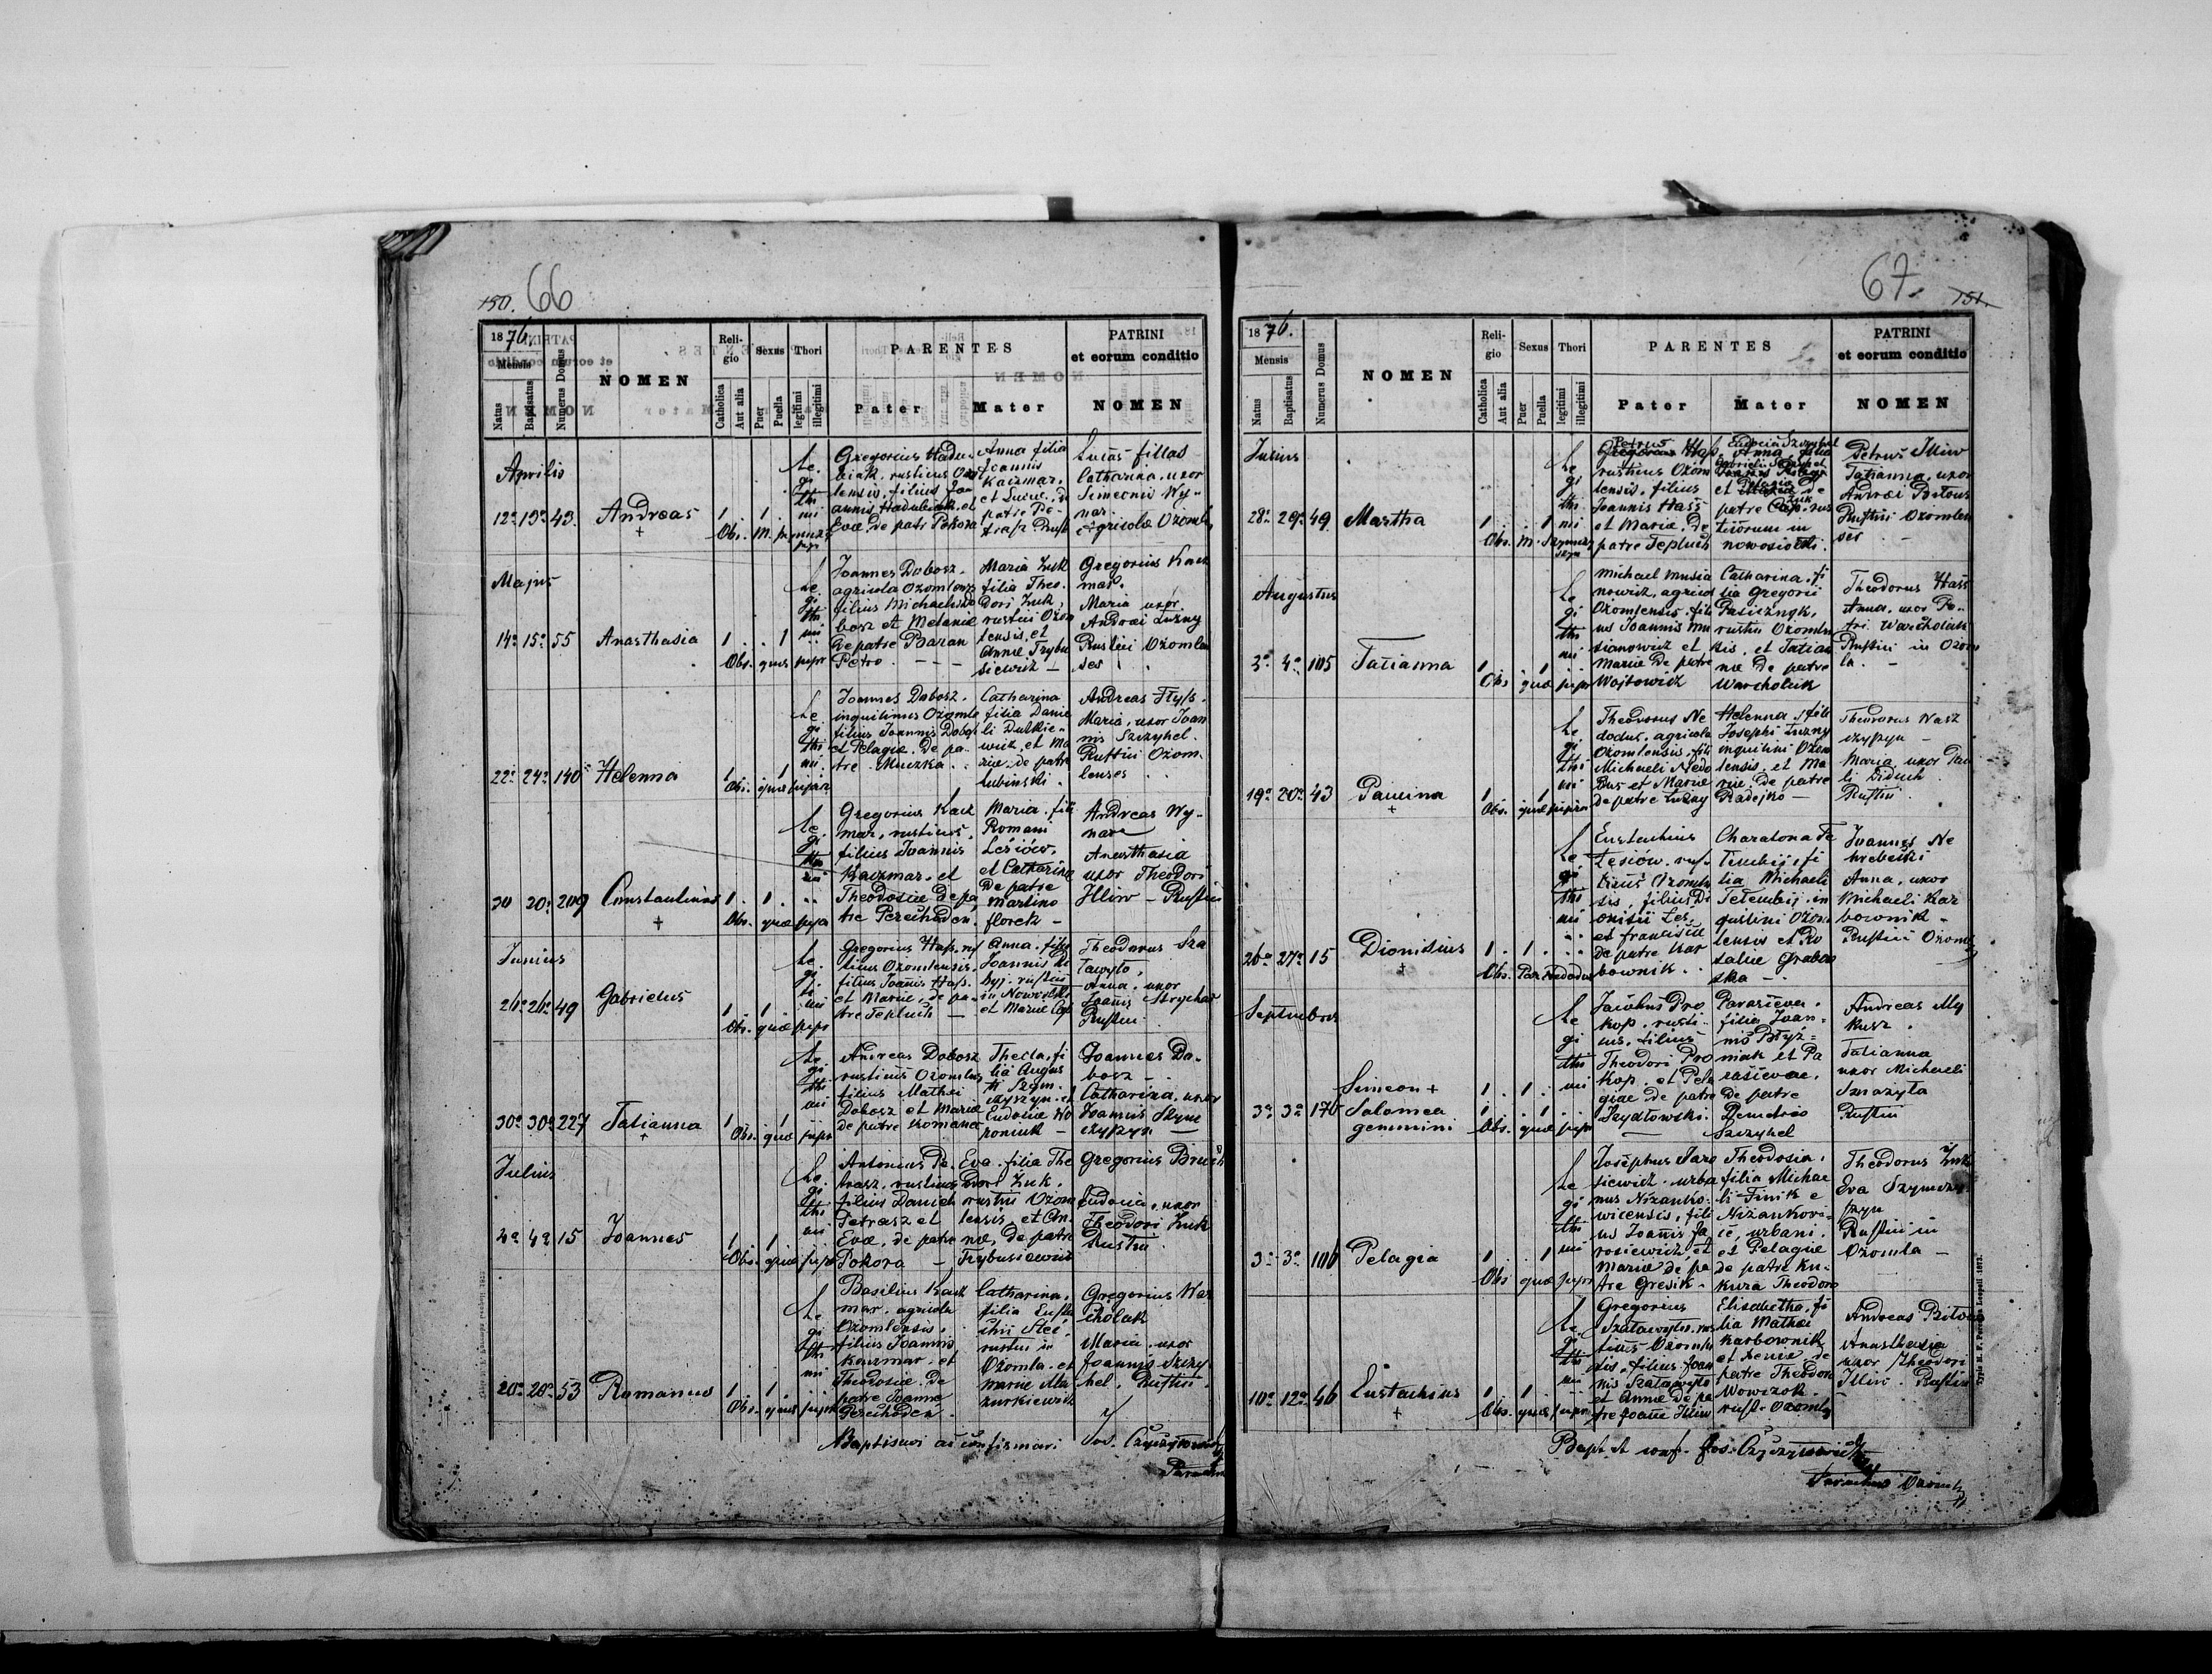 150. 66
1876.
Mensis
Natus
Baptisatus
Numerus Domus
NOMEN
Religio
Catholica
Aut alia
Sexus
Puer
Puella
Thori
legitimi
illegitimi
PARENTES
Pater
Mater
PATRINI
et eorum conditio
NOMEN
Aprilis
12a 13a 43. Andreas
+
1 . 1 .
Obs. m.
Le
gi
thi
mi
Gregorius Hadu-
biak, rusticus Ozom
lensis, filius Jo
annis Hadubiak et
Evae de patre Pokora
Anna filia
Joannis
Kaczmar,
et Luciae, de
patre Pe-
trasz Rust
Lucas
Catharina, uxor
Simeonis Wy-
nar.
Agricolae Ozoml
Majus
14a 15a 55 Anasthasia
1 . . 1
Obs. quae supr
Le
gi
thi
mi
Joannes Dobosz.
agricola Ozomlensis
filius Michaelis Do
bosz et Melaniae
de patre Baran
Petro - - -
Maria Zuk
filia Theo-
dori Zuk,
rustici Ozom
lensis, et
Annae Trybu
siewicz -
Gregorius Kacz
mar.
Maria uxor
Andreae Luzny
Rustici Ozomlen
ses
22a 24a 140 Helenna
1 . 1
Obs. quae supra
Le
gi
thi
mi
Joannes Dobosz.
inquilinus Ozomle
filius Joannis Dobosz
et Pelagiae de pa-
tre Muczka.
Catharina
filia Danie
li Dutkie-
wicz, et Ma
riae de patre
Lubinski.
Andreas Hyss.
Maria, uxor Joan
nis Szczyhel.
Rustici Ozom-
lenses
30 30a 209 Constantinus
+
1 . 1 .
Obs. quae supra
Le
gi
thi
mi
Gregorius Kacz
mar, rusticus,
filius Joannis
Kaczmar, et
Theodosiae de pa
tre Perchoden.
Maria filia
Romani
Lesiów,
et Catharinae
de patre
Martino
florek -
Andreas Wy-
nar
Anasthasia
uxor Theodori
Iliw - Rustici
Junius
26a 26a 49 Gabrielus
1 . 1 .
Obs. quae supr
Le
gi
ti
mi
Gregorius Hass, rus
ticus Ozomlensis,
filius Joannis Hass.
et Mariae, de pa-
tre Tepluch -
Anna, filia
Joannis
rustici
in
et Mariae
Theodorus Sza
lawyto,
Anna, uxor
Joannis Strychar
Rustici
30a 30a 227 Tatianna
+
1 . 1
Obs. quae supr
Le
gi
thi
mi
Andreas Dobosz
rusticus Ozomlens
filius Mathei
Dobosz et Mariae
de patre Romana
Thecla, fi
lia Augus
ti Szym-
czyszyn et
Eudociae Wo
roniuk -
Joannes Do-
bosz -
Catharina, uxor
Joannis Szym
czyszyn -
Julius
4a 4a 15 Joannes
1 . 1
Obs. quae supr
Le
gi
thi
mi
Antonius Pe
trasz, rusticus
filius Danieli
Petrasz et
Evae, de patre
Pokora -
Eva filia The
dori Zuk.
rustici Ozom
lensis, et An-
nae, de patre
Trybusiewicz
Gregorius Bruch
Eudocia, uxor
Theodori Zuk
Rustici
20a 20a 53 Romanus
1 . 1
Obs. quae supra
Le
gi
thi
mi
Basilius Kacz
mar. agricola
Ozomlensis.
filius Joannis
Kaczmar. et
Theodosiae de
patre Joanne
Perchoden.
Catharina,
filia Eusta
chii Stec,
rustici in
Ozomla, et
Mariae Ma
zurkiewicz
Gregorius War
cholak
Maria, uxor
Joannis Szczy
hel. Rustici.
Baptisavi ac confirmavi Jos. Czyrzytowicz
Parochus
67. 151.
1876.
Mensis
Natus
Baptisatus
Numerus Domus
NOMEN
Religio
Catholica
Aut alia
Sexus
Puer
Puella
Thori
legitimi
illegitimi
PARENTES
Pater
Mater
PATRINI
et eorum conditio
NOMEN
Julius
28a 29a 49 Martha
1 . . 1
Obs. m.
Le
gi
thi
mi
Petrus
Gregorius Hass.
rusticus Ozom
lensis, filius
Joannis Hass
et Mariae, de
patre Tepluch
Eudocia Szczyhel
Anna, filia
Gabrieli Szczyhel
et Pelagia de
patre
ticorum in
nowosiolki.
Petrus Iliw
Tatianna, uxor
Andreae Bitous
Rustici Ozomlen
ses -
Augustus
3a 4a 105 Tatianna
1 . 1
Obs quae supr
Le
gi
thi
mi
Michael Musia
nowicz, agricola
Ozomlensis, fili
us Joannis Mu
sianowicz et
Mariae de patre
Wojtowicz
Catharina, fi
lia Gregorii
Pasicznyk,
rustici Ozomlen
sis, et Tatian
nae de patre
Warcholak
Theodorus Hass
Anna, uxor Pe-
tri Warcholak
Rustici in Ozom
la. -
19a 20a 43 Paucina
+
1 . 1
Obs. quae supra
Le
gi
thi
mi
Theodorus Ne
dodus, agricola
Ozomlensis, fili
Michaeli Nedo
dus et Mariae
de patre Luzny
Helenna, filia
Josephi Luzny
inquilini Ozom
lensis, et Ma
riae, de patre
Radejko -
Theodorus Wasz
czyszyn -
Maria, uxor Pau
li Diduch.
Rustici.
26a 27a 15 Dionisius
+
1 . 1 .
Obs. Par. Nedodus
Le
gi
thi
mi
Eustachius
Lesiów, rus-
ticus Ozomlen
sis, filius Di
onisii Les,
et franciscae
de patre Kar
bownik.
Charatona Te
Telembij, fi
lia Michaeli
Telembij, in
quilini Ozom
lensis et Ro
saliae Grabow
ska -
Joannes Ne
hrebecki
Anna, uxor
Michaeli Kar
bownik -
Rustici Ozoml
Septembris
3a 3a 176
Simeon +
Salomea
gemmini
1 . 1 .
1 . 1
Obs. quae supr
Le
gi
thi
mi
Jacobus Pro
kop, rusti-
cus, filius
Theodori Pro
kop, et Pela
giae de patre
Szydlowski
Parasceva,
filia Joan-
nis Blyz-
niak et Pa
rascevae,
de patre
Demetrio
Szczyhel
Andreas My
kusz.
Tatianna
uxor Michaeli
Smazyla
Rustici
3a 3a 106 Pelagia
1 . 1
Obs quae supr
Le
gi
thi
mi
Josephus Jaro
siewicz, urba
nus Nizanko-
wicensis, fili
us Joannis Ja
rosiewicz, et
Mariae de pa
tre Gresik -
Theodosia,
filia Michae
li Fenik e
Nizankovi-
ce, urbani,
et Pelagiae
de patre Ku-
kura Theodoro
Theodorus Zuk
Eva Szymczy
szyn
Rustici in
Ozomla -
10a 12a 46 Eustachius
+
1 . 1
Obs. quae supra
Le
gi
thi
mi
Gregorius
Szalawyto, rus
ticus Ozomlen
sis, filius Joan
nis Szalawyto
et Annae de pa
tre Joanne Iliw
Elisabetha, fi
lia Mathei
Karbownik
et Xeniae de
patre Theodoro
Wowczok.
rust. Ozoml
Andreas Bitous
Anasthasia
uxor Theodori
Iliw. Rustici
Bapt. et conf. Jos. Czyrzytowicz
Parochus Ozoml